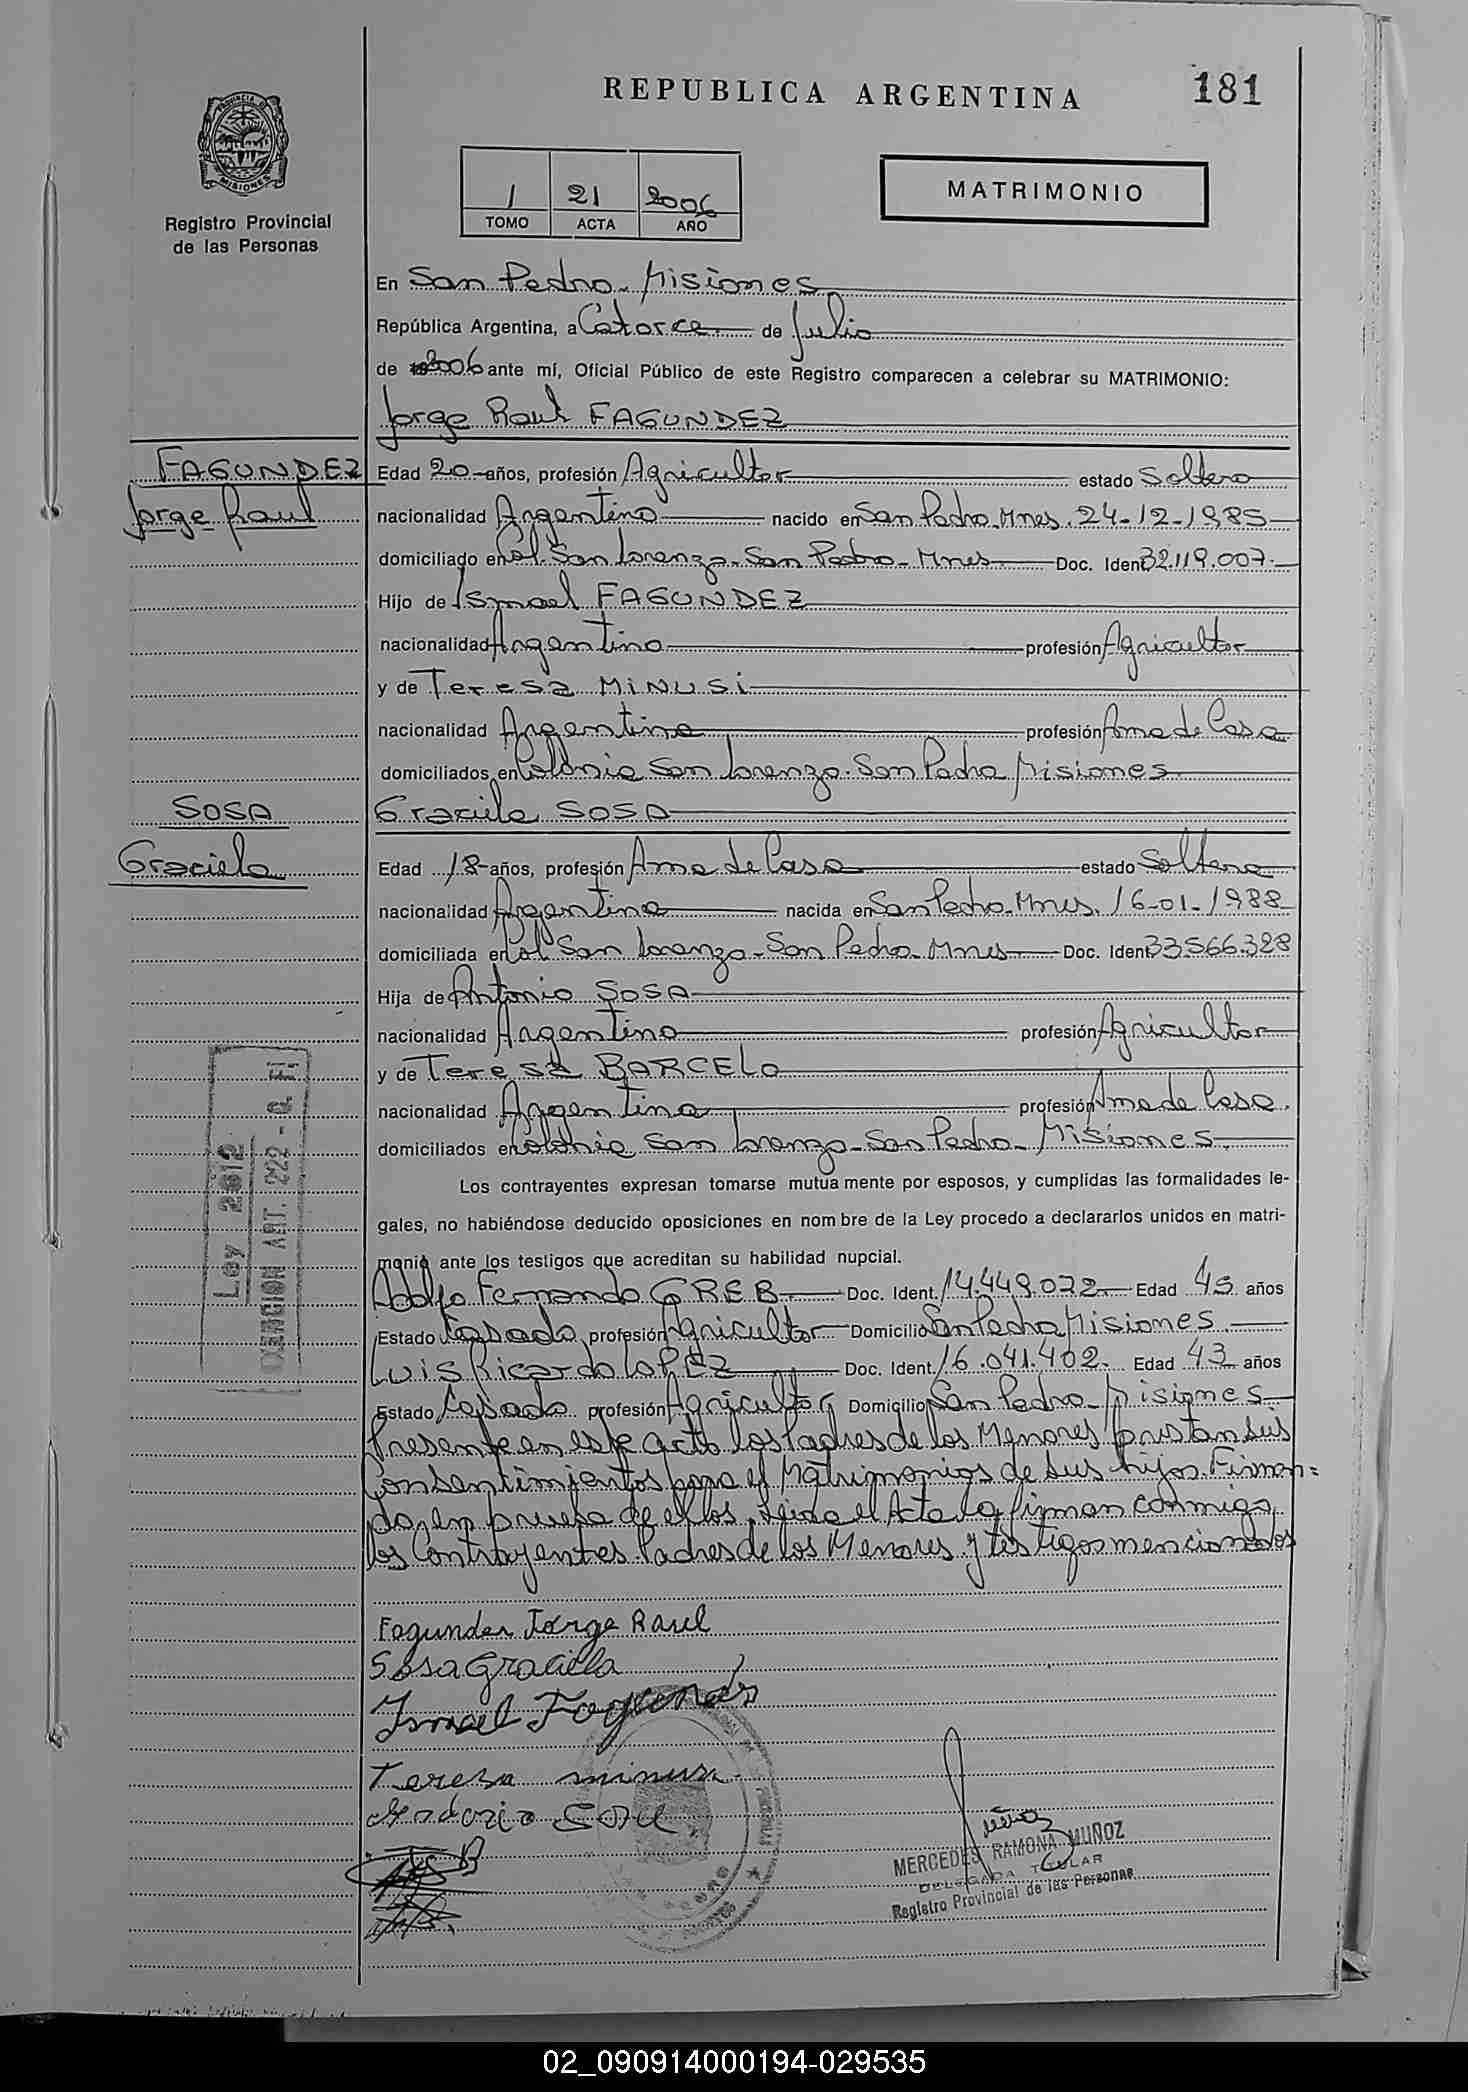 REPUBLICA ARGENTINA
181
PROVINCIA DE
MISIONES
Registro Provincial
de las Personas
1 21 2006
TOMO ACTA AÑO
MATRIMONIO
En San Pedro - Misiones
República Argentina, a Catorce de Julio
de 2006 ante mí, Oficial Público de este Registro comparecen a celebrar su MATRIMONIO:
Jorge Raul FAGUNDEZ
FAGUNDEZ
Jorge Raul
Edad 20 años, profesión Agricultor estado Soltero
nacionalidad Argentino nacido en San Pedro - Mnes. 24-12-1985
domiciliado en Col. San Lorenzo - San Pedro - Mnes Doc. Ident 32.119.007.-
Hijo de Ismael FAGUNDEZ
nacionalidad Argentino profesión Agricultor
y de Teresa MINUSI
nacionalidad Argentina profesión Ama de Casa
domiciliados en Colonia San Lorenzo - San Pedro Misiones
SOSA
Graciela
Graciela SOSA
Edad 18 años, profesión Ama de Casa estado Soltera
nacionalidad Argentina nacida en San Pedro - Mnes. 16-01-1988
domiciliada en Col San Lorenzo - San Pedro - Mnes Doc. Ident 33.566.328
Hija de Antonio SOSA
nacionalidad Argentino profesión Agricultor
y de Teresa BARCELO
nacionalidad Argentina profesión Ama de Casa.
domiciliados en Colonia San Lorenzo - San Pedro - Misiones
Ley 2612
EXENCION ART. 222 - Q. FI
Los contrayentes expresan tomarse mutua mente por esposos, y cumplidas las formalidades le-
gales, no habiéndose deducido oposiciones en nom bre de la Ley procedo a declararlos unidos en matri-
monio ante los testigos que acreditan su habilidad nupcial.
Adolfo Fernando GREB Doc. Ident. 14.449.072 Edad 45 años
Estado Casado profesión Agricultor Domicilio San Pedro Misiones
LUIS Ricardo LOPEZ Doc. Ident. 16.041.402. Edad 43 años
Estado Casado profesión Agricultor Domicilio San Pedro - Misiones
Presente en este acto los Padres de los Menores prestan sus
Consentimientos para el Matrimonios de sus hijos. Firman=
do en prueba de ellos. Leida el Acta la firman conmigo,
los Contrayentes. Padres de los Menores y testigos mencionados
Fagundez Jorge Raul
Sosa Graciela
Ismael Fagundes
Teresa minusi
MERCEDES RAMONA MUÑOZ
DELEGADA TITULAR
Registro Provincial de las Personas
02_090914000194-029535